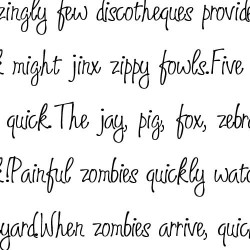 zingly few discotheques provide
might jinx zippy fowls.Five
quick.The jay, pig, fox, zebr
!Painful zombies quickly wat
yard.When zombies arrive, quic